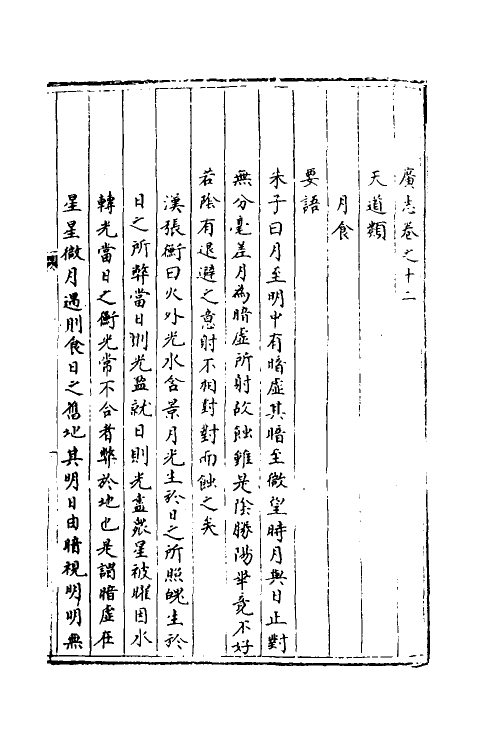 廣志卷之十二
天道類
月食
要語
朱子曰月至明中有暗虛其暗至微望時月與日正對
無分毫差月為暗虛所射故蝕雖是陰勝陽畢竟不好
若陰有退避之意則不相對對而蝕之矣
漢張衡曰火外光水含景月光生於日之所照魄生於
日之所蔽當日則光盈就日則光盡衆星被曜因水
轉光當日之衝光常不合者蔽於地也是謂暗虛在
星星微月遇則食日之舊地其明日由暗視明明無